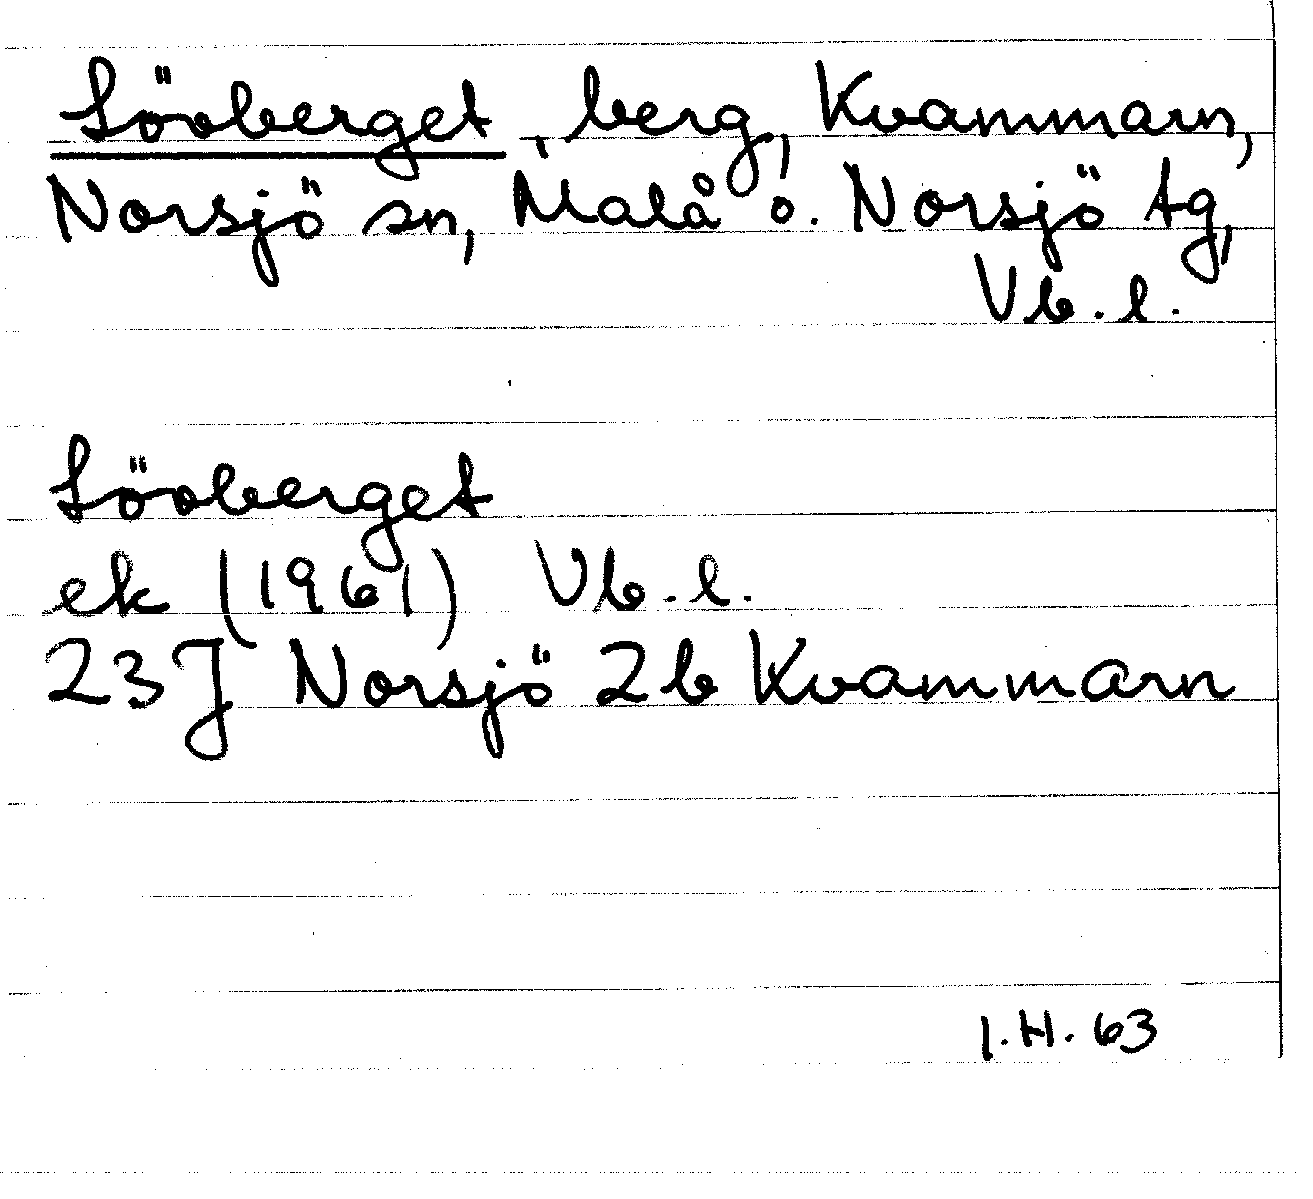 Lövberget, berg, Kvammarn,
Norsjö sn, Malå o. Norsjö tg,
Vb.l.
Lövberget
ek (1961) Vb.l.
23J Norsjö 2b Kvammarn
I.H. 63